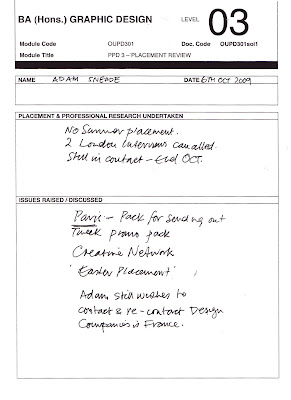 BA (Hons.) GRAPHIC DESIGN LEVEL 03
Module Code OUPD301 Doc. Code OUPD301sol1
Module Title PPD 3 – PLACEMENT REVIEW
NAME ADAM SNEADE DATE 6TH OCT 2009
PLACEMENT & PROFESSIONAL RESEARCH UNDERTAKEN
No Summer placement.
2 London Interviews cancelled.
Still in contact – End OCT.
ISSUES RAISED / DISCUSSED
Paris – Pack for sending out
Tweek promo pack
Creative Network
'Easter Placement'
Adam still wishes to
contact & re-contact Design
Companies in France.